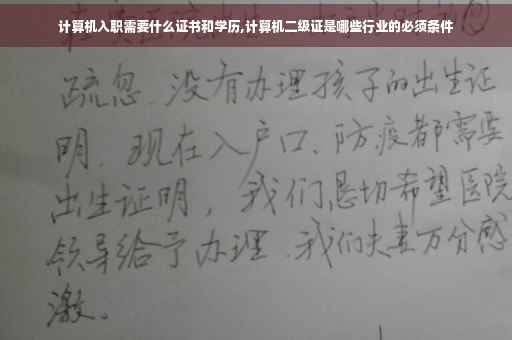 计算机入职需要什么证书和学历,计算机二级证是哪些行业的必须条件
疏忽.没有办理孩子的出生证
明.现在入户口、防疫都需要
出生证明,我们恳切希望医院
领导给予办理.我们夫妻万分感
激。